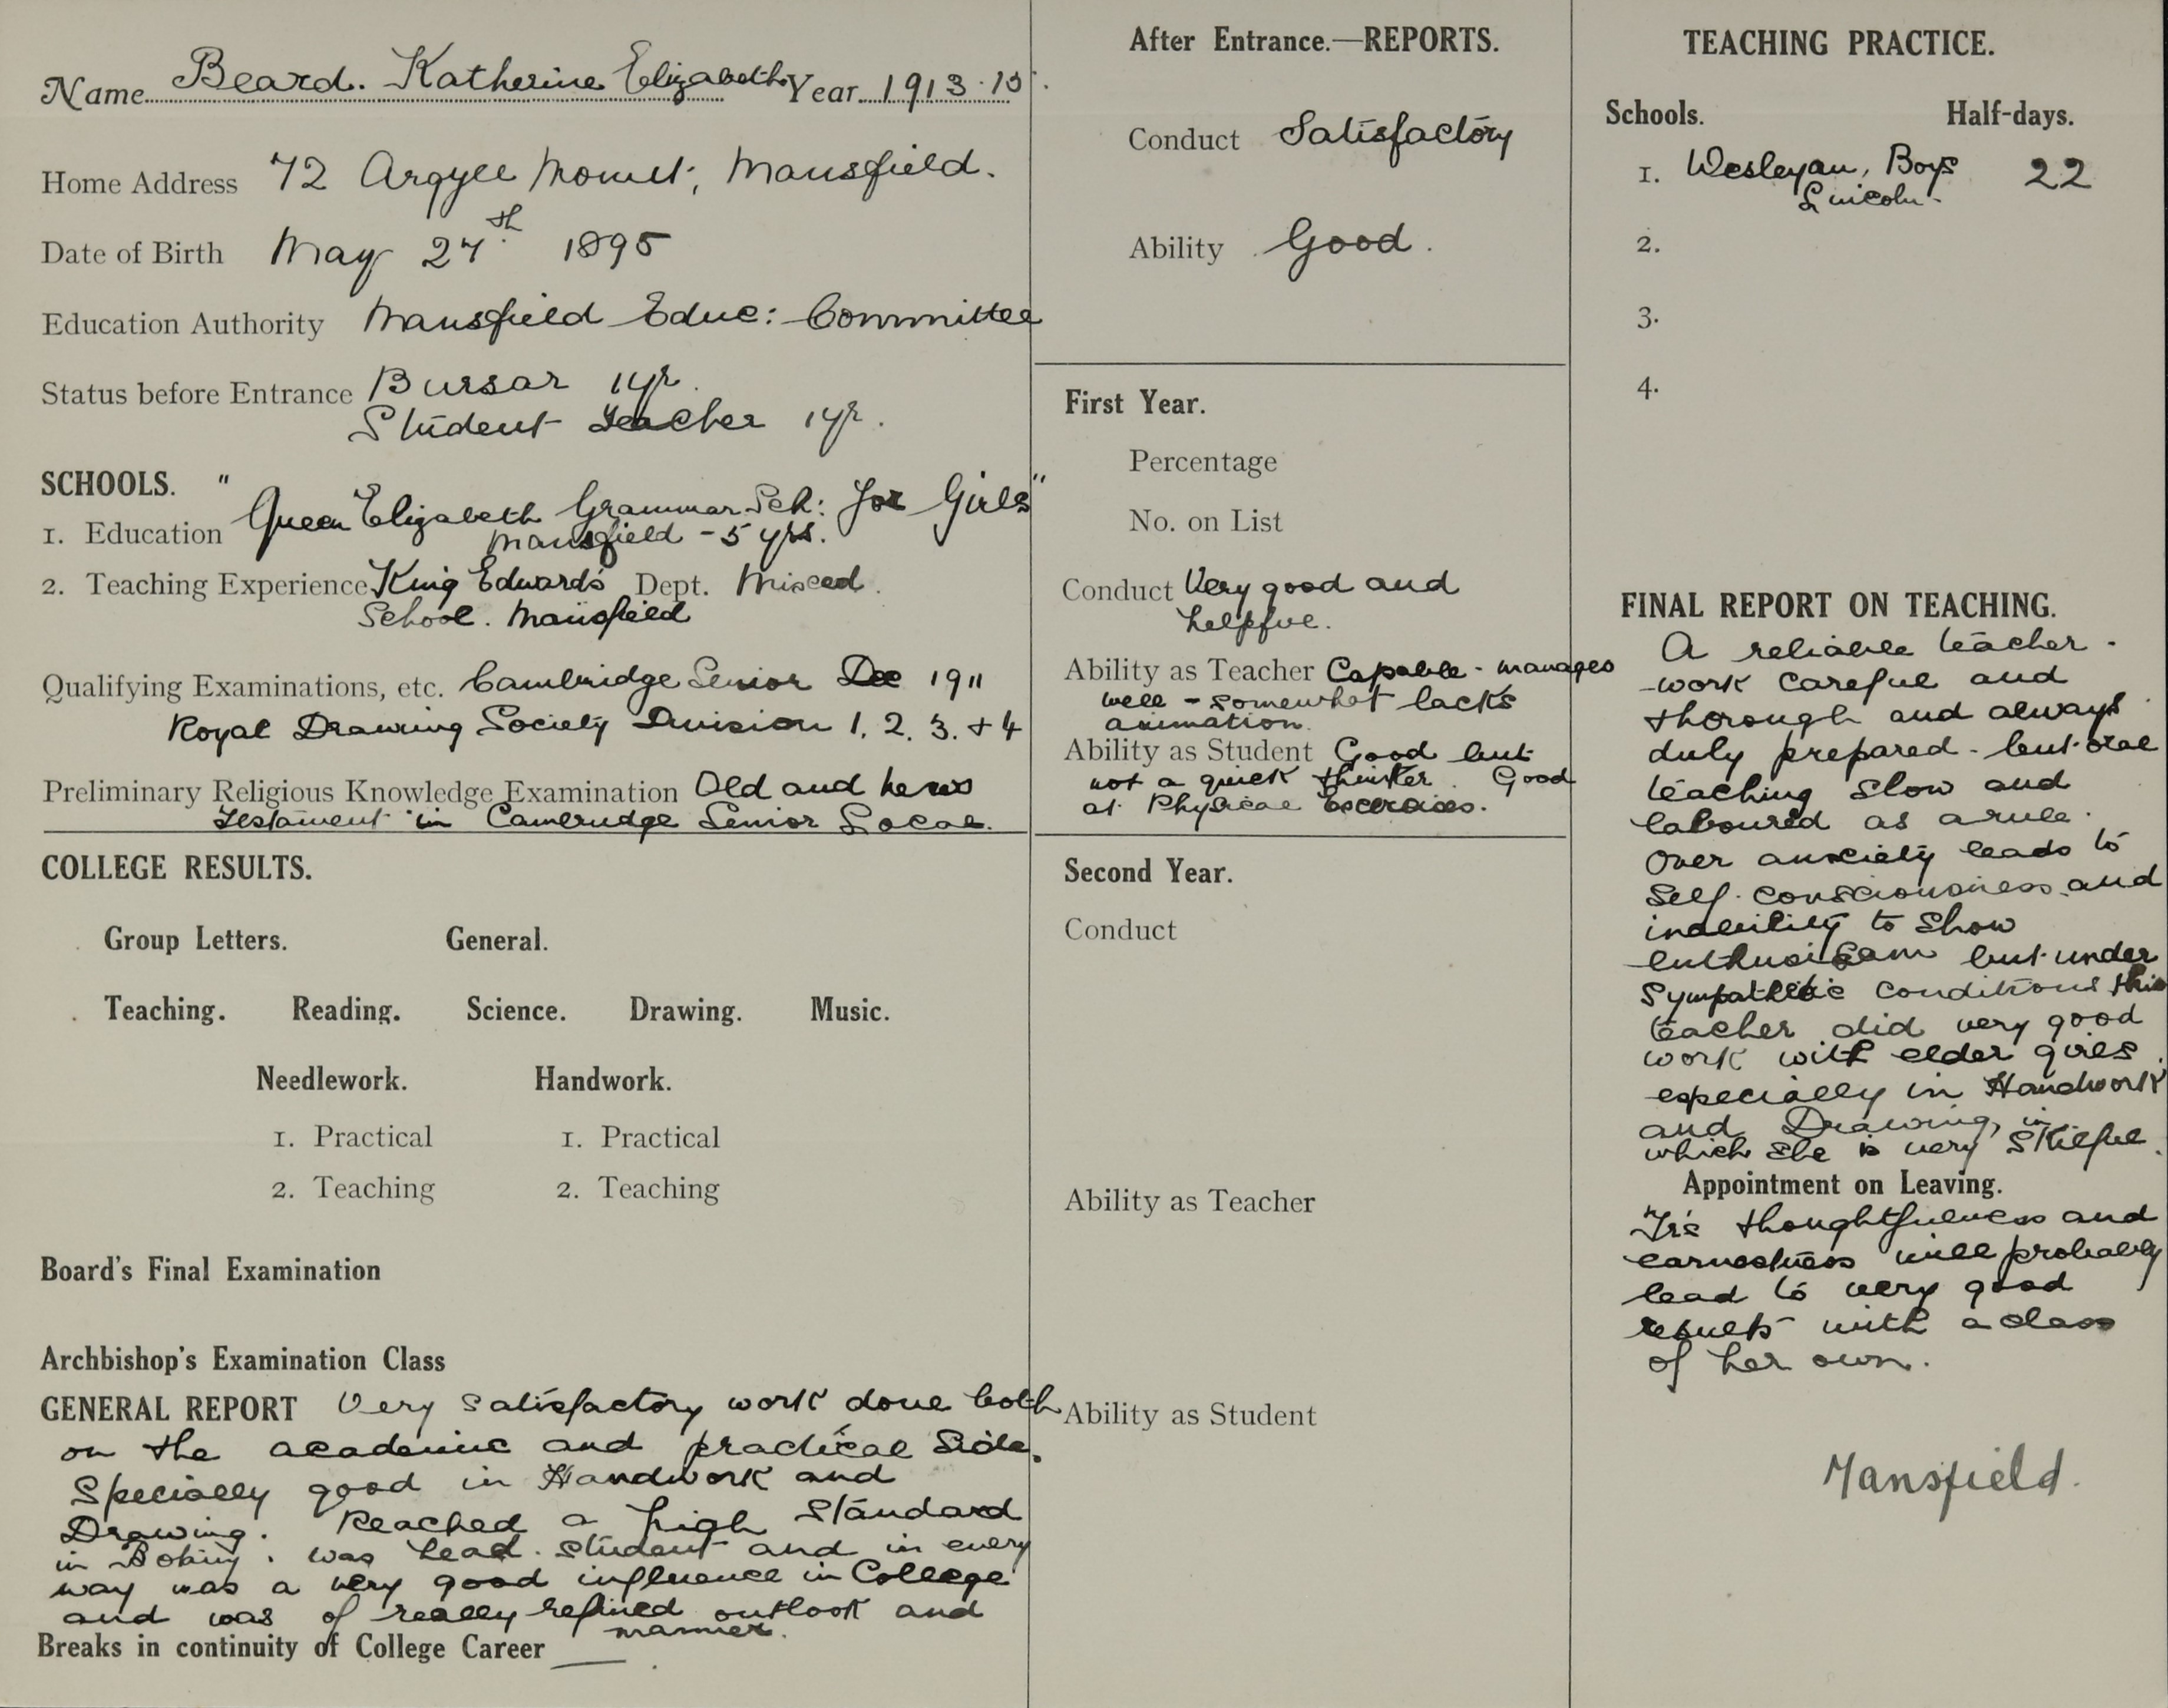 Name Beard. Katherine Elizabeth Year 1913.15.
Home Address 72 Argyle Mount, Mansfield.
Date of Birth May 27th. 1895
Education Authority Mansfield Educ: Committee
Status before Entrance Bursar 1yr.
Student Teacher 1yr.
SCHOOLS.
1. Education "Queen Elizabeth Grammar Sch: for Girls"
Mansfield - 5 yrs.
2. Teaching Experience King Edward's Dept. Mixed.
School. Mansfield
Qualifying Examinations, etc. Cambridge Senior Dec 1911
Royal Drawing Society Division 1. 2. 3. + 4
Preliminary Religious Knowledge Examination Old and New
Testament in Cambridge Senior Local.
COLLEGE RESULTS.
Group Letters. General.
Teaching. Reading. Science. Drawing. Music.
Needlework. Handwork.
1. Practical 1. Practical
2. Teaching 2. Teaching
Board's Final Examination
Archbishop's Examination Class
GENERAL REPORT Very satisfactory work done both
on the academic and practical side.
Specially good in Handwork and
Drawing. Reached a high standard
in Botany. Was head student and in every
way was a very good influence in College
and was of really refined outlook and
manner.
Breaks in continuity of College Career —.
After Entrance.—REPORTS.
Conduct Satisfactory
Ability Good.
First Year.
Percentage
No. on List
Conduct Very good and
helpful.
Ability as Teacher Capable - manages
well - somewhat lacks
animation.
Ability as Student Good but
not a quick thinker. Good
at Physical Exercises.
Second Year.
Conduct
Ability as Teacher
Ability as Student
TEACHING PRACTICE.
Schools. Half-days.
1. Wesleyan, Boys 22
Lincoln.
2.
3.
4.
FINAL REPORT ON TEACHING.
A reliable teacher -
work careful and
thorough and always
duly prepared - but oral
teaching slow and
laboured as a rule.
Over anxiety leads to
self-consciousness and
inability to show
enthusiasm but under
sympathetic conditions this
teacher did very good
work with elder girls
especially in Handwork
and Drawing, in
which she is very skilful.
Appointment on Leaving.
thoughtfulness and
earnestness will probably
lead to very good
results with a class
of her own.
Mansfield.